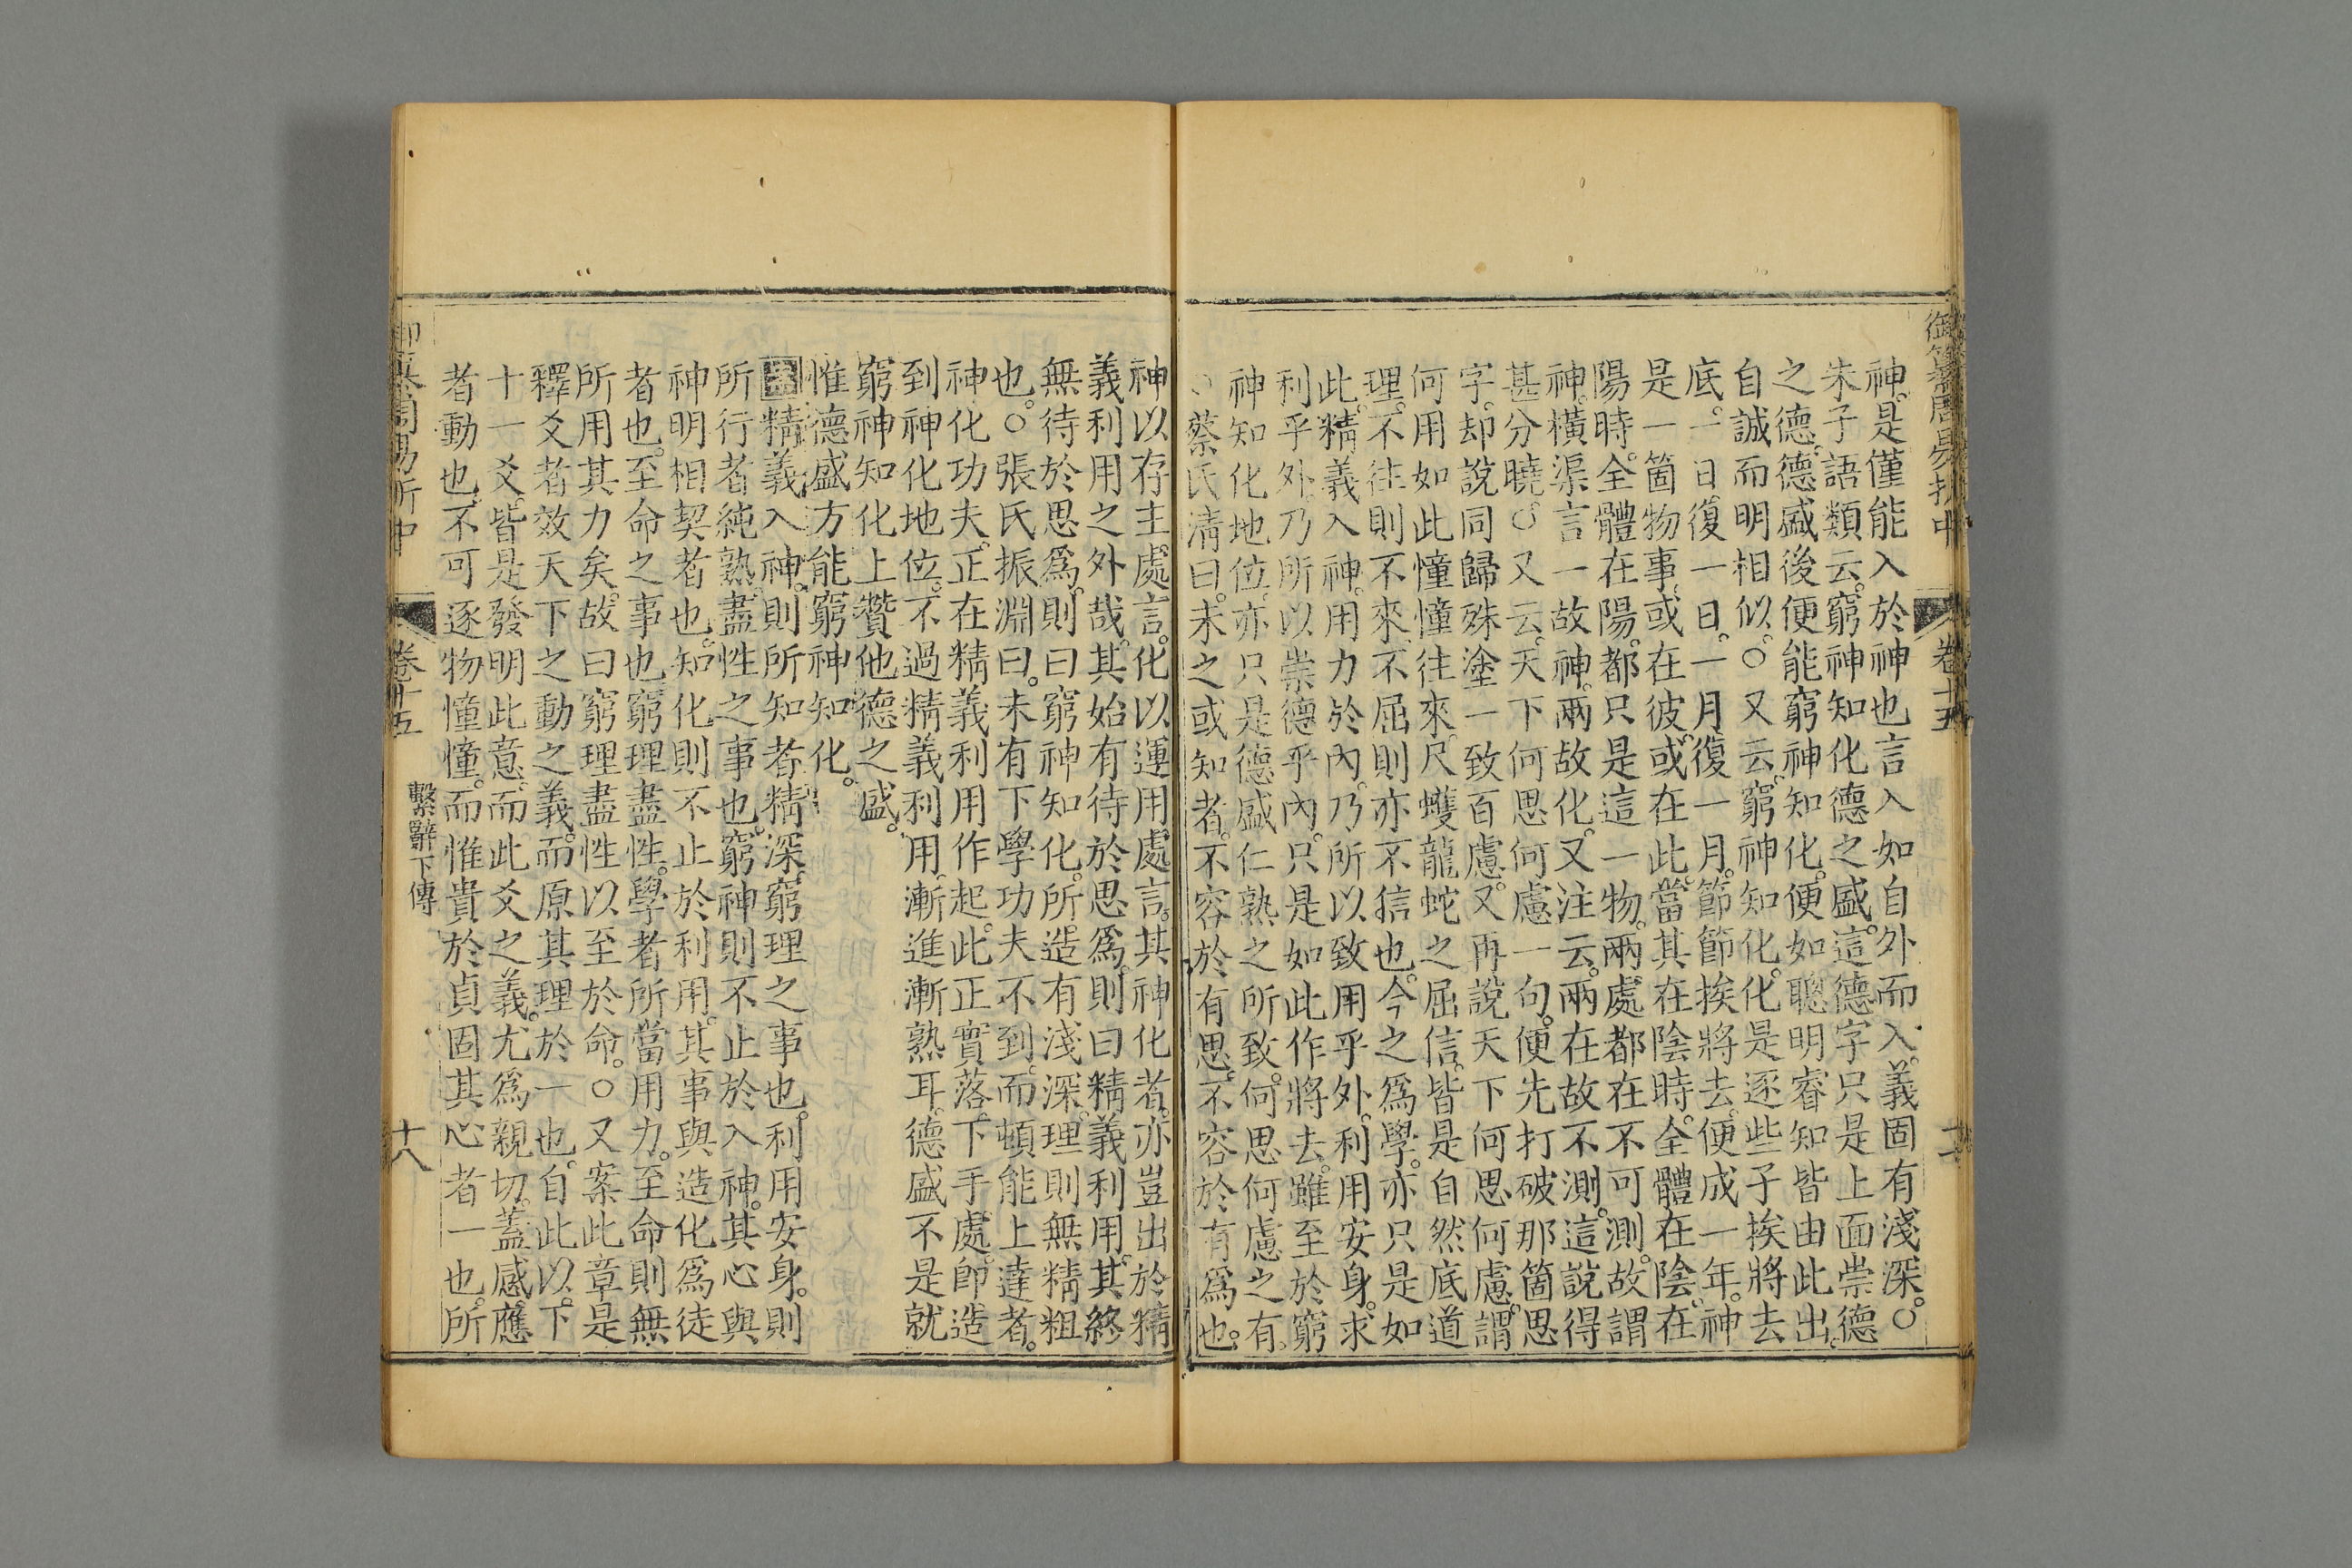 御纂周易折中
卷十五
神。是僅能入於神也言入如自外而入。義固有淺深。○
朱子語類云。窮神知化德之盛。這德字只是上面崇德
之德。德盛後便能窮神知化。便如聰明睿知皆由此出。
自誠而明相似。○又云。窮神知化。化是逐些子挨將去
底。一日復一日。一月復一月。節節挨將去。便成一年。神
是一箇物事。或在彼。或在此。當其在陰時。全體在陰。在
陽時。全體在陽。都只是這一物。兩處都在不可測。故謂
神。橫渠言一故神。兩故化。又注云。兩在故不測。這說得
甚分曉。○又云。天下何思何慮一句。便先打破那箇思
字。却說同歸殊塗一致百慮。又再說天下何思何慮。謂
何用如此憧憧往來。尺蠖龍蛇之屈信。皆是自然底道
理。不往則不來。不屈則亦不信也。今之爲學。亦只是如
此。精義入神。用力於內。乃所以致用乎外。利用安身。求
利乎外。乃所以崇德乎內。只是如此作將去。雖至於窮
神知化地位。亦只是德盛仁熟之所致。何思何慮之有。
○蔡氏淸曰。未之或知者。不容於有思。不容於有爲也。
神以存主處言。化以運用處言。其神化者。亦豈出於精
義利用之外哉。其始有待於思爲。則曰精義利用。其終
無待於思爲。則曰窮神知化。所造有淺深。理則無精粗
也。○張氏振淵曰。未有下學功夫不到。而頓能上達者。
神化功夫。正在精義利用作起。此正實落下手處。卽造
到神化地位。不過精義利用。漸進漸熟耳。德盛不是就
窮神知化上贊他德之盛。
惟德盛方能窮神知化。
精義入神。則所知者精深。窮理之事也。利用安身。則
所行者純熟。盡性之事也。窮神則不止於入神。其心與
神明相契者也。知化則不止於利用。其事與造化爲徒
者也。至命之事也。窮理盡性。學者所當用力。至命則無
所用其力矣。故曰窮理盡性以至於命。○又案此章是
釋爻者效天下之動之義。而原其理於一也。自此以下
十一爻。皆是發明此意。而此爻之義。尤爲親切。蓋感應
者動也。不可逐物憧憧。而惟貴於貞固其心者一也。所
御纂周易折中
卷十五
繫辭下傳
十八